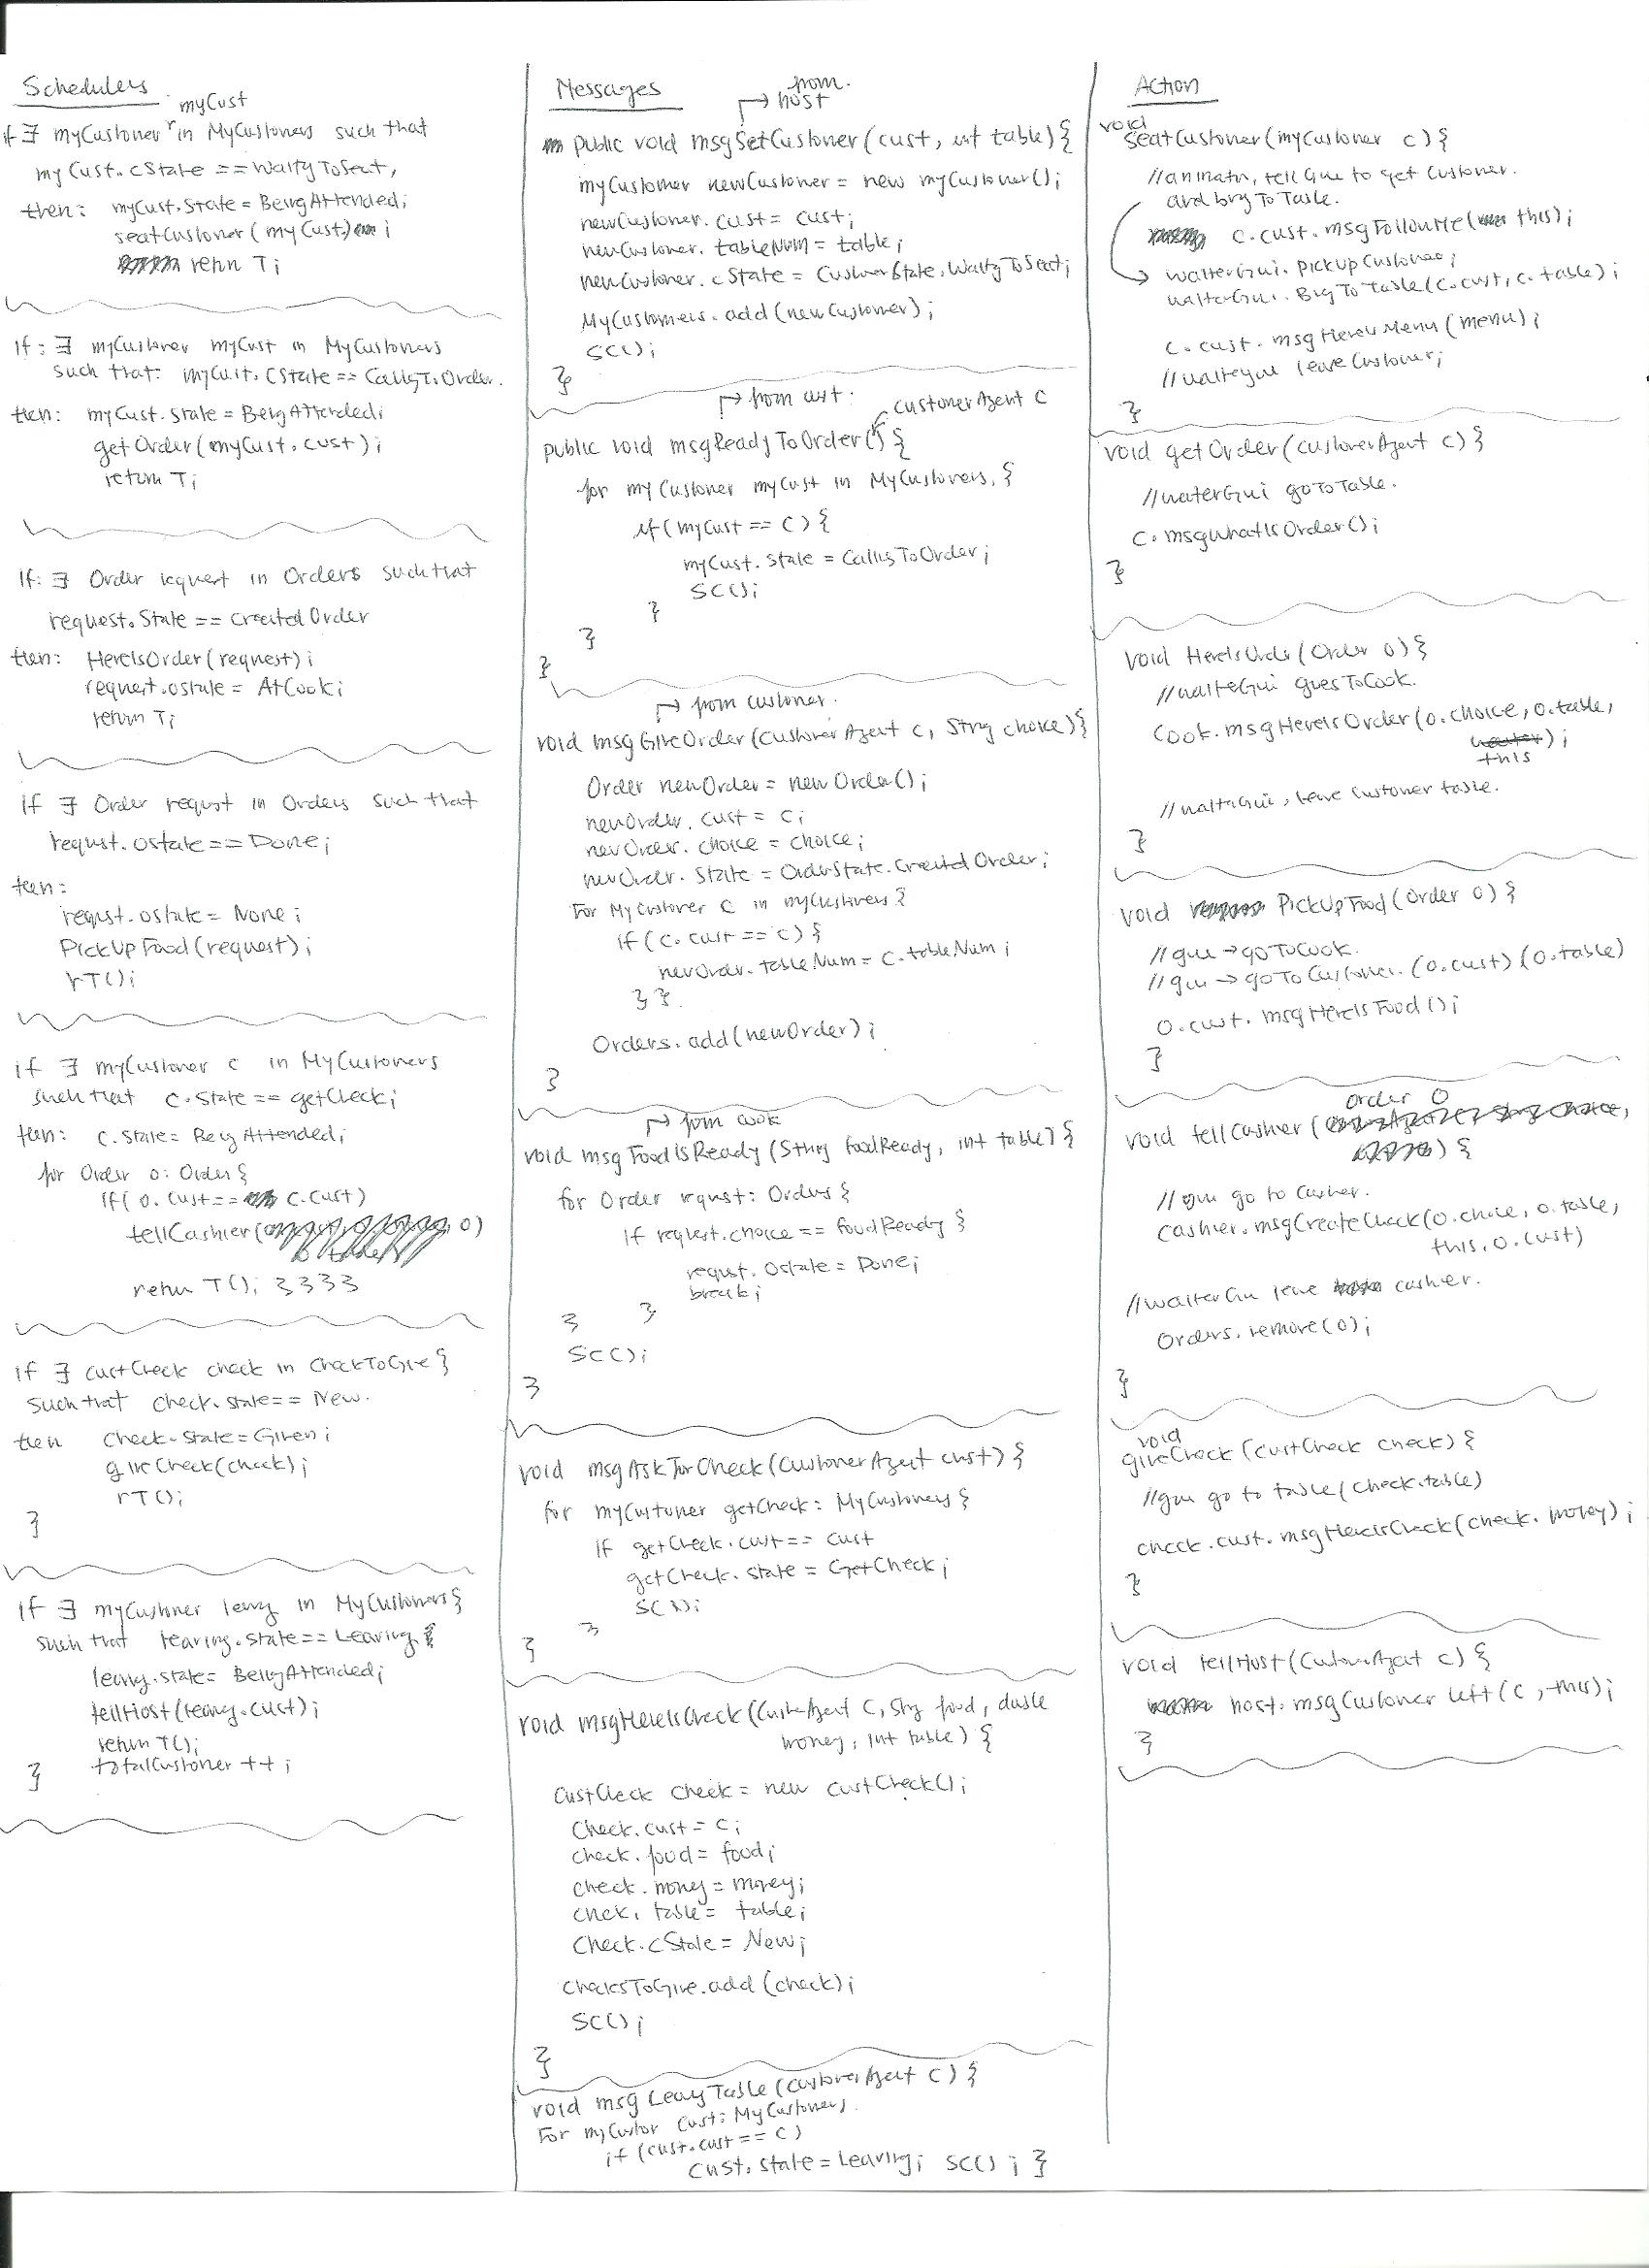 Schedulers
myCust
if ∃ myCustomer in MyCustomers such that
myCust.cState == WaitgToSeat,
then: myCust.state = BeingAttended;
seatCustomer(myCust);
return T;
If: ∃ myCustomer myCust in MyCustomers
such that: myCust.cState == CallgToOrder.
then: myCust.state = BeingAttended;
getOrder(myCust.cust);
return T;
If: ∃ Order request in Orders such that
request.state == CreatedOrder
then: HereIsOrder(request);
request.ostate = AtCook;
return T;
if ∃ Order request in Orders such that
request.ostate == Done;
then:
request.ostate = None;
PickUpFood(request);
rT();
if ∃ myCustomer c in MyCustomers
such that c.state == getCheck;
then: c.state = BeingAttended;
for Order o: Order{
if( o.cust == c.cust)
tellCashier( o)
return T(); }}}}
if ∃ custCheck check in CheckToGive {
such that check.state == New.
then check.state = Given;
giveCheck(check);
rT();
}
If ∃ myCustomer leavg in MyCustomers{
such that leaving.state == Leaving.{
leavg.state = BeingAttended;
tellHost(leavg.cust);
return T();
} totalCustomer ++;
Messages
from
host
public void msgSetCustomer(cust, int table){
myCustomer newCustomer = new myCustomer();
newCustomer.cust = cust;
newCustomer.tableNum = table;
newCustomer.cState = CustomerState.WaitgToSeat;
MyCustomers.add(newCustomer);
SC();
}
from cust.
customerAgent c
public void msgReadyToOrder() {
for myCustomer myCust in MyCustomers, {
if(myCust == C) {
myCust.state = CallingToOrder;
SC();
}
}
}
from customer.
void msgGiveOrder(CustomerAgent c, String choice){
Order newOrder = new Order();
newOrder.cust = c;
newOrder.choice = choice;
newOrder.state = OrderState.CreatedOrder;
For MyCustomer C in myCustomers {
if(c.cust == c) {
newOrder.tableNum = c.tableNum;
} }.
Orders.add(newOrder);
}
from cook
void msgFoodIsReady(String foodReady, int table) {
for Order request: Orders {
if request.choice == foodReady {
request.ostate = Done;
break;
}
}
SC();
}
void msgAskForCheck(CustomerAgent cust) {
for myCustomer getCheck: MyCustomers {
if getCheck.cust == cust
getCheck.state = GetCheck;
SC();
}
}
void msgHereIsCheck(CustomerAgent C, String food, double
money, int table) {
CustCheck check = new custCheck();
check.cust = c;
check.food = food;
check.money = money;
check.table = table;
Check.cState = New;
ChecksToGive.add(check);
SC();
}
void msgLeavgTable(CustomerAgent C) {
For myCustomer cust: MyCustomers
if (cust.cust == c)
cust.state = Leaving; SC(); }
Action
void
seatCustomer(myCustomer c) {
//animatn, tell Gui to get customer.
and brg To Table.
c.cust.msgFollowMe( this);
waiterGui.PickUpCustomer;
waiterGui.BrgToTable(c.cust, c.table);
c.cust.msgHereIsMenu(menu);
//waitergui leave customer;
}
void getOrder(customerAgent c) {
//waterGui goToTable.
c.msgWhatIsOrder();
}
void HereIsOrder(Order o) {
//waiteGui goesToCook.
Cook.msgHereIsOrder(o.choice, o.table,
waiter);
this
//waiterGui, leave customer table.
}
void PickUpFood(Order o) {
//gui → goToCook.
//gui → goToCustomer. (o.cust) (o.table)
o.cust.msgHereIsFood();
}
order o
void tellCashier(
) {
//gui go to cashier.
cashier.msgCreateCheck(o.choice, o.table,
this, o.cust)
//waiterGui leave cashier.
Orders.remove(o);
}
void
giveCheck(custCheck check) {
//gui go to table(check.table)
check.cust.msgHereIsCheck(check.money);
}
void tellHost(CustomerAgent c) {
host.msgCustomerLeft(c, this);
}